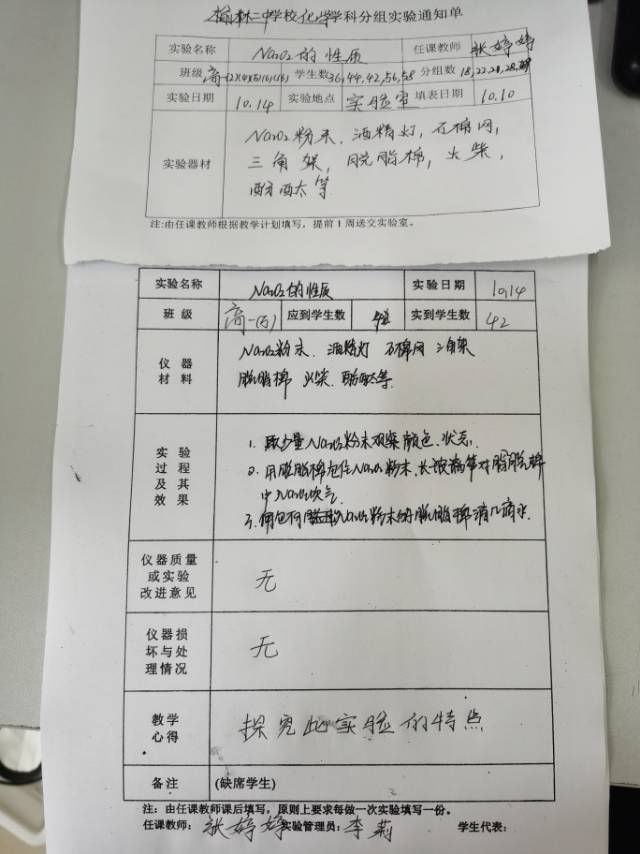 榆林二中学校化学学科分组实验通知单
实验名称 Na₂O₂的性质 任课教师 张婷婷
班级 高一 学生数 36,44,42,56,58 分组数 18,22,21,28,
实验日期 10.14 实验地点 实验室 填表日期 10.10
实验器材 Na₂O₂粉末，酒精灯，石棉网，
三角架，脱脂棉，火柴，
酚酞等
注:由任课教师根据教学计划填写，提前1周送交实验室。
实验名称 Na₂O₂的性质 实验日期 10.14
班级 高一(5) 应到学生数 42 实到学生数 42
仪器材料 Na₂O₂粉末、酒精灯 石棉网 三角架
脱脂棉 火柴、酚酞等
实验过程及其效果 1. 取少量Na₂O₂粉末观察颜色、状态.
2. 用脱脂棉包住Na₂O₂粉末、长玻璃管对脂脱棉
中Na₂O₂吹气
3. 向包有Na₂O₂粉末的脱脂棉滴几滴水.
仪器质量或实验改进意见 无
仪器损坏与处理情况 无
教学心得 探究此实验的特点
备注 (缺席学生)
注：由任课教师课后填写，原则上要求每做一次实验填写一份。
任课教师：张婷婷 实验管理员：李莉 学生代表：